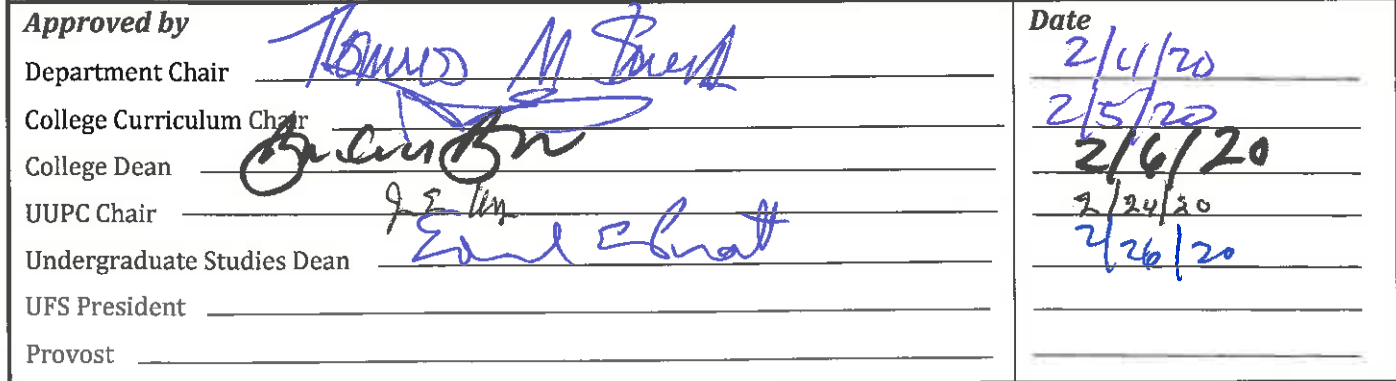 Approved by Date
Department Chair M 2/4/20
College Curriculum Chair 2/5/20
College Dean 2/6/20
UUPC Chair 2/24/20
Undergraduate Studies Dean 2/26/20
UFS President
Provost